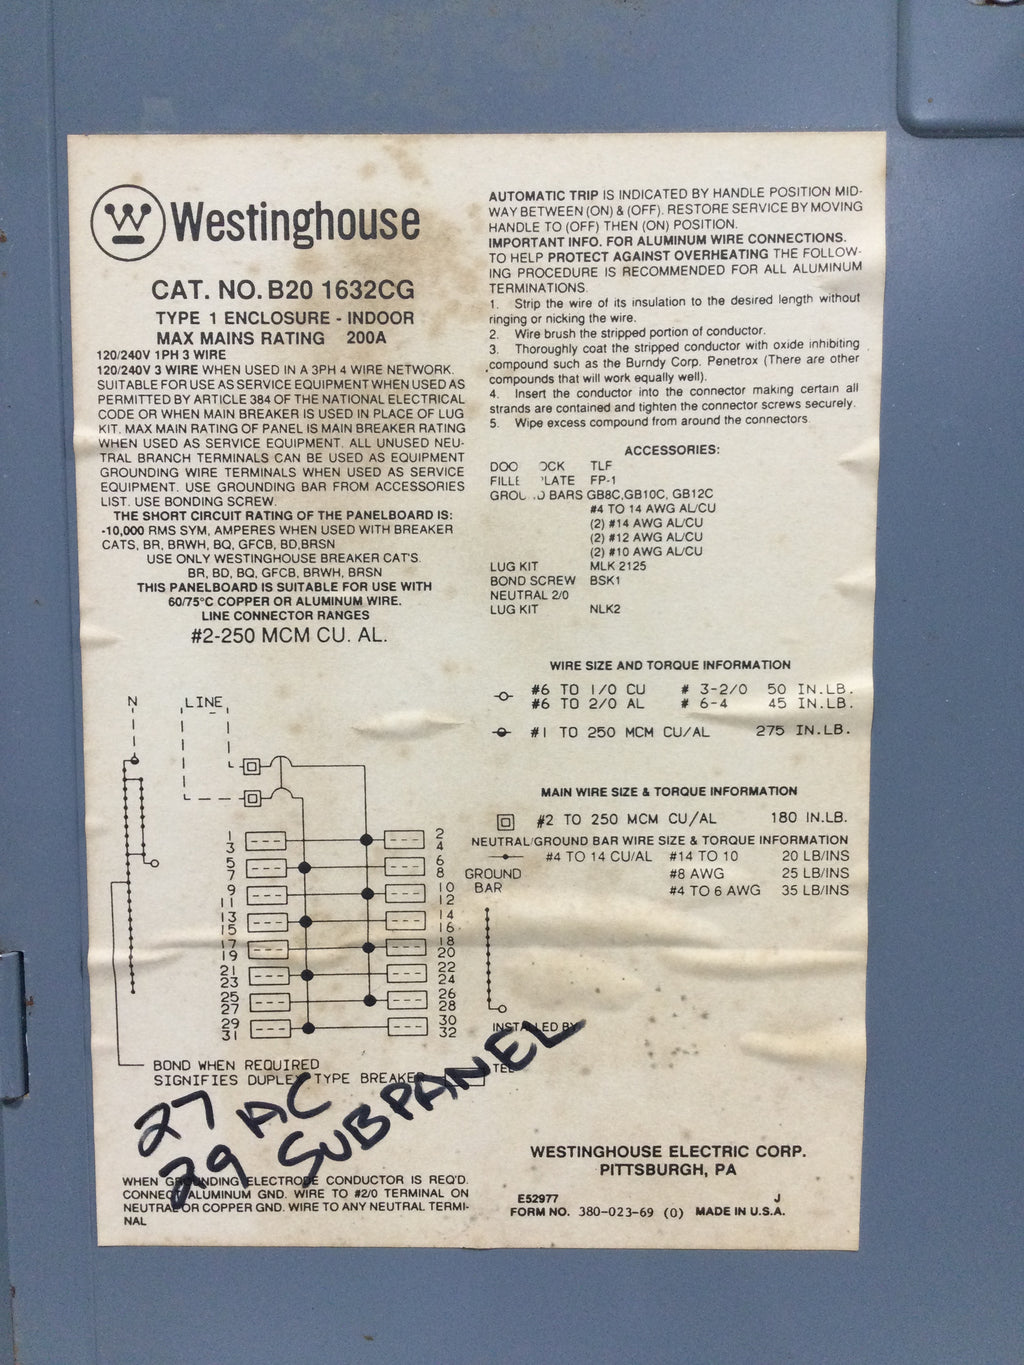 Westinghouse
CAT. NO. B20 1632CG
TYPE 1 ENCLOSURE - INDOOR
MAX MAINS RATING 200A
120/240V 1PH 3 WIRE
120/240V 3 WIRE WHEN USED IN A 3PH 4 WIRE NETWORK.
SUITABLE FOR USE AS SERVICE EQUIPMENT WHEN USED AS
PERMITTED BY ARTICLE 384 OF THE NATIONAL ELECTRICAL
CODE OR WHEN MAIN BREAKER IS USED IN PLACE OF LUG
KIT. MAX MAIN RATING OF PANEL IS MAIN BREAKER RATING
WHEN USED AS SERVICE EQUIPMENT. ALL UNUSED NEU-
TRAL BRANCH TERMINALS CAN BE USED AS EQUIPMENT
GROUNDING WIRE TERMINALS WHEN USED AS SERVICE
EQUIPMENT. USE GROUNDING BAR FROM ACCESSORIES
LIST. USE BONDING SCREW.
THE SHORT CIRCUIT RATING OF THE PANELBOARD IS:
-10,000 RMS SYM, AMPERES WHEN USED WITH BREAKER
CATS, BR, BRWH, BQ, GFCB, BD,BRSN
USE ONLY WESTINGHOUSE BREAKER CAT'S.
BR, BD, BQ, GFCB, BRWH, BRSN
THIS PANELBOARD IS SUITABLE FOR USE WITH
60/75°C COPPER OR ALUMINUM WIRE.
LINE CONNECTOR RANGES
#2-250 MCM CU. AL.
N LINE
1 2
3 4
5 6
7 8
9 10
11 12
13 14
15 16
17 18
19 20
21 22
23 24
25 26
27 28
29 30
31 32
BOND WHEN REQUIRED
SIGNIFIES DUPLEX TYPE BREAKER
27
29 AC
SUBPANEL
WHEN GROUNDING ELECTRODE CONDUCTOR IS REQ'D.
CONNECT ALUMINUM GND. WIRE TO #2/0 TERMINAL ON
NEUTRAL OR COPPER GND. WIRE TO ANY NEUTRAL TERMI-
NAL
AUTOMATIC TRIP IS INDICATED BY HANDLE POSITION MID-
WAY BETWEEN (ON) & (OFF). RESTORE SERVICE BY MOVING
HANDLE TO (OFF) THEN (ON) POSITION.
IMPORTANT INFO. FOR ALUMINUM WIRE CONNECTIONS.
TO HELP PROTECT AGAINST OVERHEATING THE FOLLOW-
ING PROCEDURE IS RECOMMENDED FOR ALL ALUMINUM
TERMINATIONS.
1. Strip the wire of its insulation to the desired length without
ringing or nicking the wire.
2. Wire brush the stripped portion of conductor.
3. Thoroughly coat the stripped conductor with oxide inhibiting
compound such as the Burndy Corp. Penetrox (There are other
compounds that will work equally well).
4. Insert the conductor into the connector making certain all
strands are contained and tighten the connector screws securely.
5. Wipe excess compound from around the connectors.
ACCESSORIES:
TLF
FP-1
BARS GB8C,GB10C, GB12C
#4 TO 14 AWG AL/CU
(2) #14 AWG AL/CU
(2) #12 AWG AL/CU
(2) #10 AWG AL/CU
LUG KIT MLK 2125
BOND SCREW BSK1
NEUTRAL 2/0
LUG KIT NLK2
WIRE SIZE AND TORQUE INFORMATION
#6 TO 1/0 CU # 3-2/0 50 IN.LB.
#6 TO 2/0 AL # 6-4 45 IN.LB.
#1 TO 250 MCM CU/AL 275 IN.LB.
MAIN WIRE SIZE & TORQUE INFORMATION
#2 TO 250 MCM CU/AL 180 IN.LB.
NEUTRAL/GROUND BAR WIRE SIZE & TORQUE INFORMATION
#4 TO 14 CU/AL #14 TO 10 20 LB/INS
#8 AWG 25 LB/INS
#4 TO 6 AWG 35 LB/INS
GROUND
BAR
INSTALLED BY
WESTINGHOUSE ELECTRIC CORP.
PITTSBURGH, PA
E52977 J
FORM NO. 380-023-69 (0) MADE IN U.S.A.